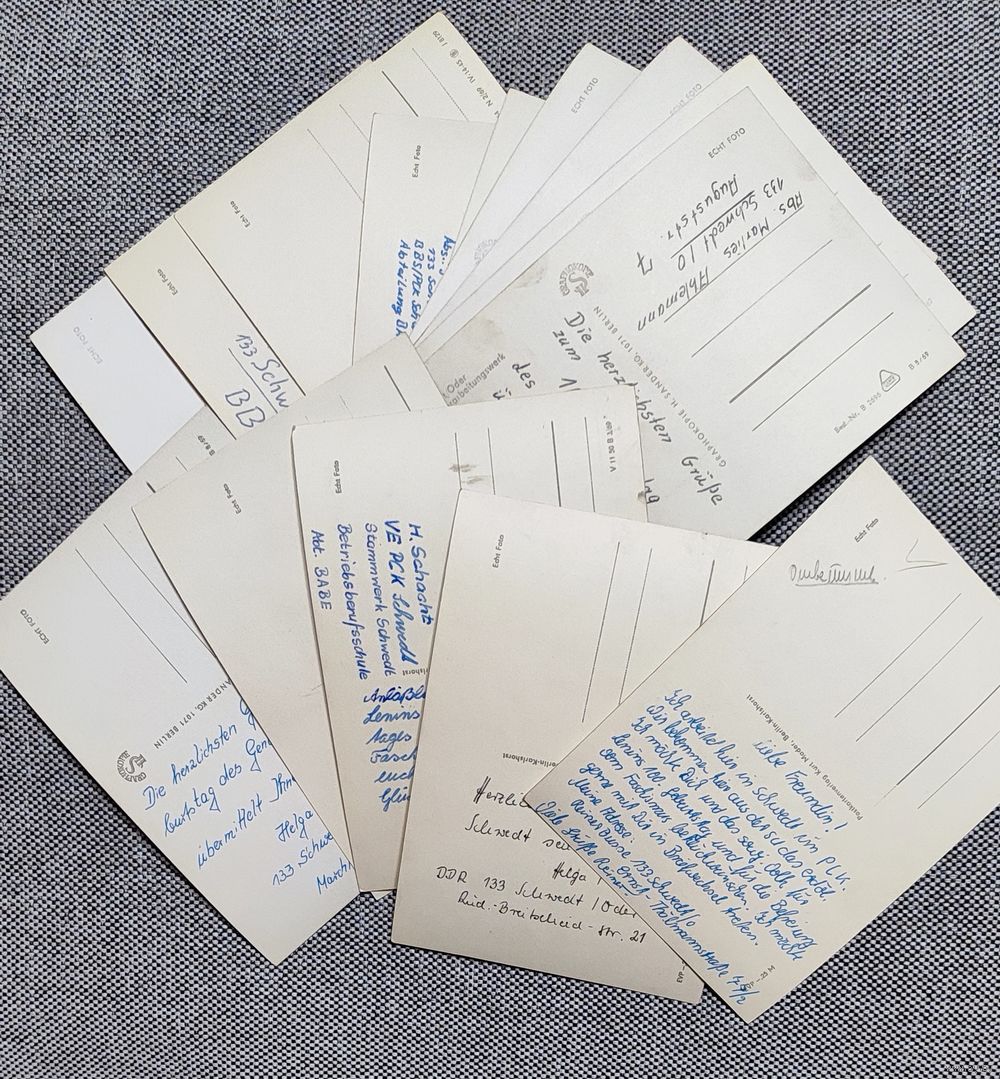 J 8129
N 2/69 IV-14-45
Echt Foto
133 Schw
BB
Echt Foto
ECHT FOTO
Echt Foto
Abs.:
133 Sch
BBS/PCK Sch
Abteilung B
ECHT FOTO
ECHT FOTO
ECHT FOTO
Abs. Marlies Ahlemann
133 Schwedt / O
Auguststr. 7
GRAPHOKOPIE H. SANDER KG, 1071 BERLIN
Die herzlichsten Grüße
zum
des
Best.-Nr. B 2696
B 5/69
Oder
arbeitungswerk
B 8/69
Echt Foto
ECHT FOTO
ANDER KG, 1071 BERLIN
Die herzlichsten G
burtstag des Gen
übermittelt Ihn
Helga
133 Schwe
March
Echt Foto
V 11 50 B 7/69
H. Schacht
VE PCK Schwedt
Stammwerk Schwedt
Betriebsberufsschule
Abt. BABE
lshorst
Anläßl
Lenins
tages
Fasch
euch
Glü
Echt Foto
Berlin-Karlshorst
Herzli
Schwedt sen
Helga
DDR 133 Schwedt / Oder
Rud.-Breitscheid-Str. 21
Echt Foto
Postkartenverlag Kurt Mader, Berlin-Karlshorst
Liebe Freundin!
Ich arbeite hier in Schwedt im PCK.
Wir bekommen hier aus der SU das Erdöl.
Ich möchte Dir und das sowj. Volk, für
Lenins 100. Geburtstag und für die Befreiung
vom Faschismus beglückwünschen. Ich möchte
gerne mit Dir in Briefwechsel treten.
Meine Adresse:
133 Schwedt/O
Ernst-Thälmannstraße
Viele Grüße